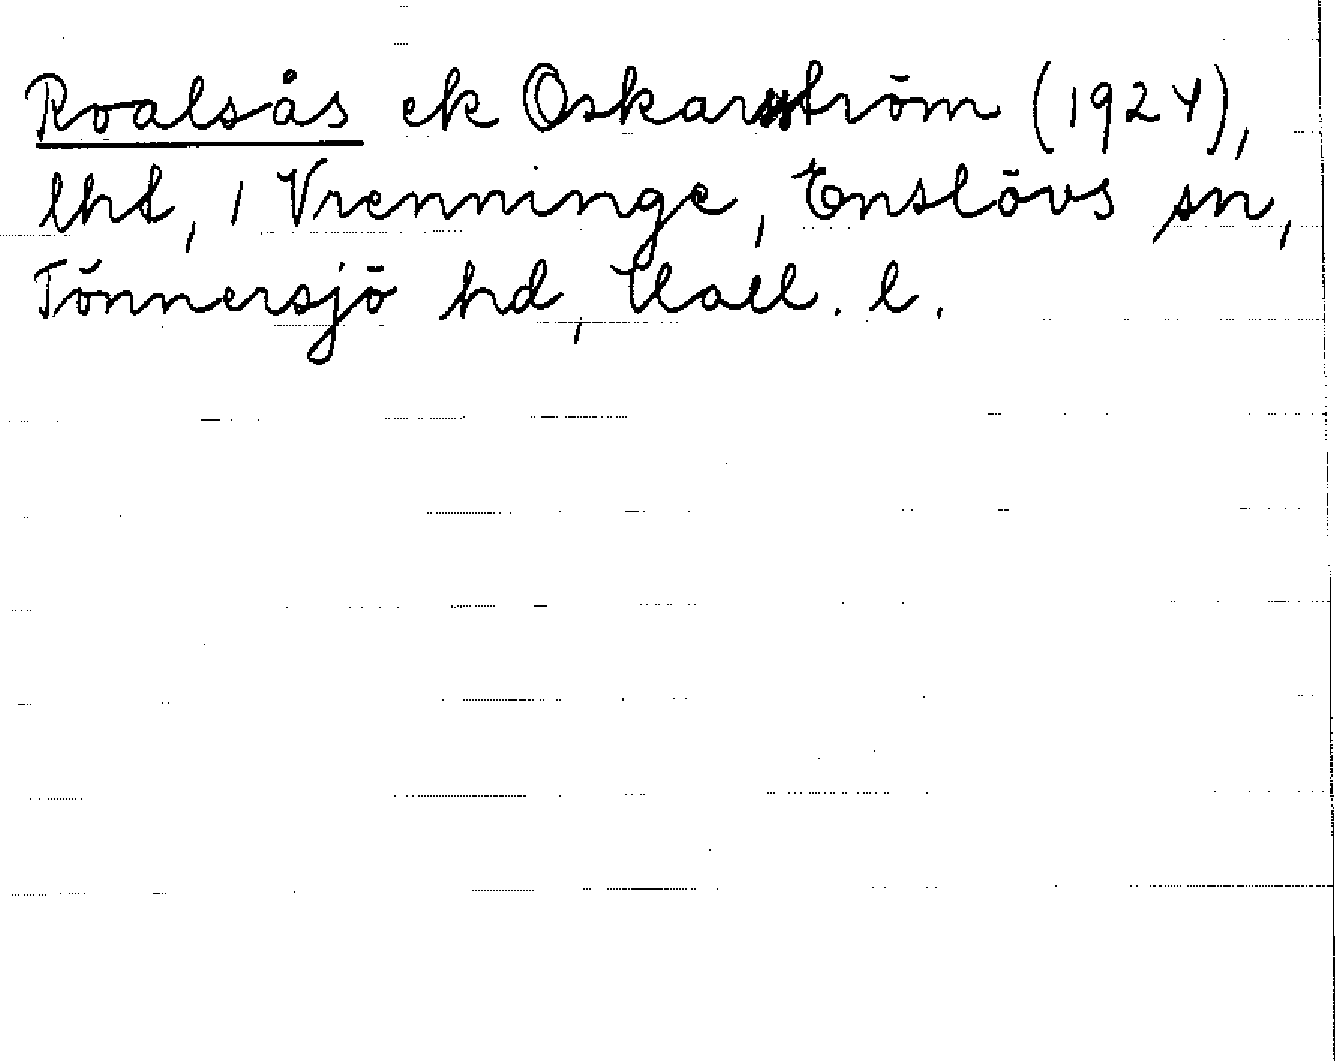 Roalsås ek Oskarström (1924),
lht, 1 Vrenninge, Enslövs sn,
Tönnersjö hd, Hall. l.